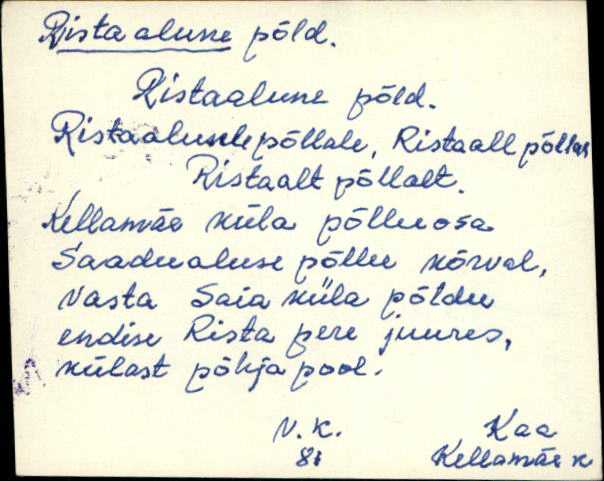 Ristaalune põld.
Ristaalune põld.
Ristaalusele põllale, Ristaall põllal
Ristaalt põllalt.
Kellamäe küla põlluosa
Saadualuse põllu kõrval,
vasta Saia küla põldu
endise Rista pere juures,
külast põhja pool.
V. K. Kaa
81 Kellamäe k